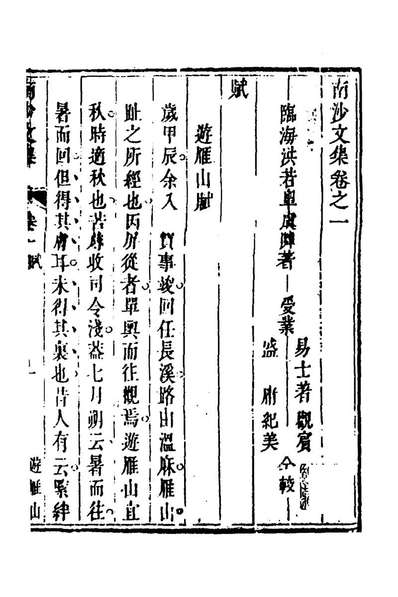 南沙文集卷之一
臨海洪若皐虞隣著 受業 易士著觀賓
盛 府紀美 仝較
賦
遊雁山賦
歲甲辰余入 賀事竣回任長溪路出溫麻雁山
趾之所經也因屏從者單輿而往觀焉遊雁山宜
秋時適秋也苦蓐收司令淺葢七月朔云暑而往
暑而回但得其膚耳未得其裏也昔人有云緊絆
南沙文集 卷一 賦 一
遊雁山